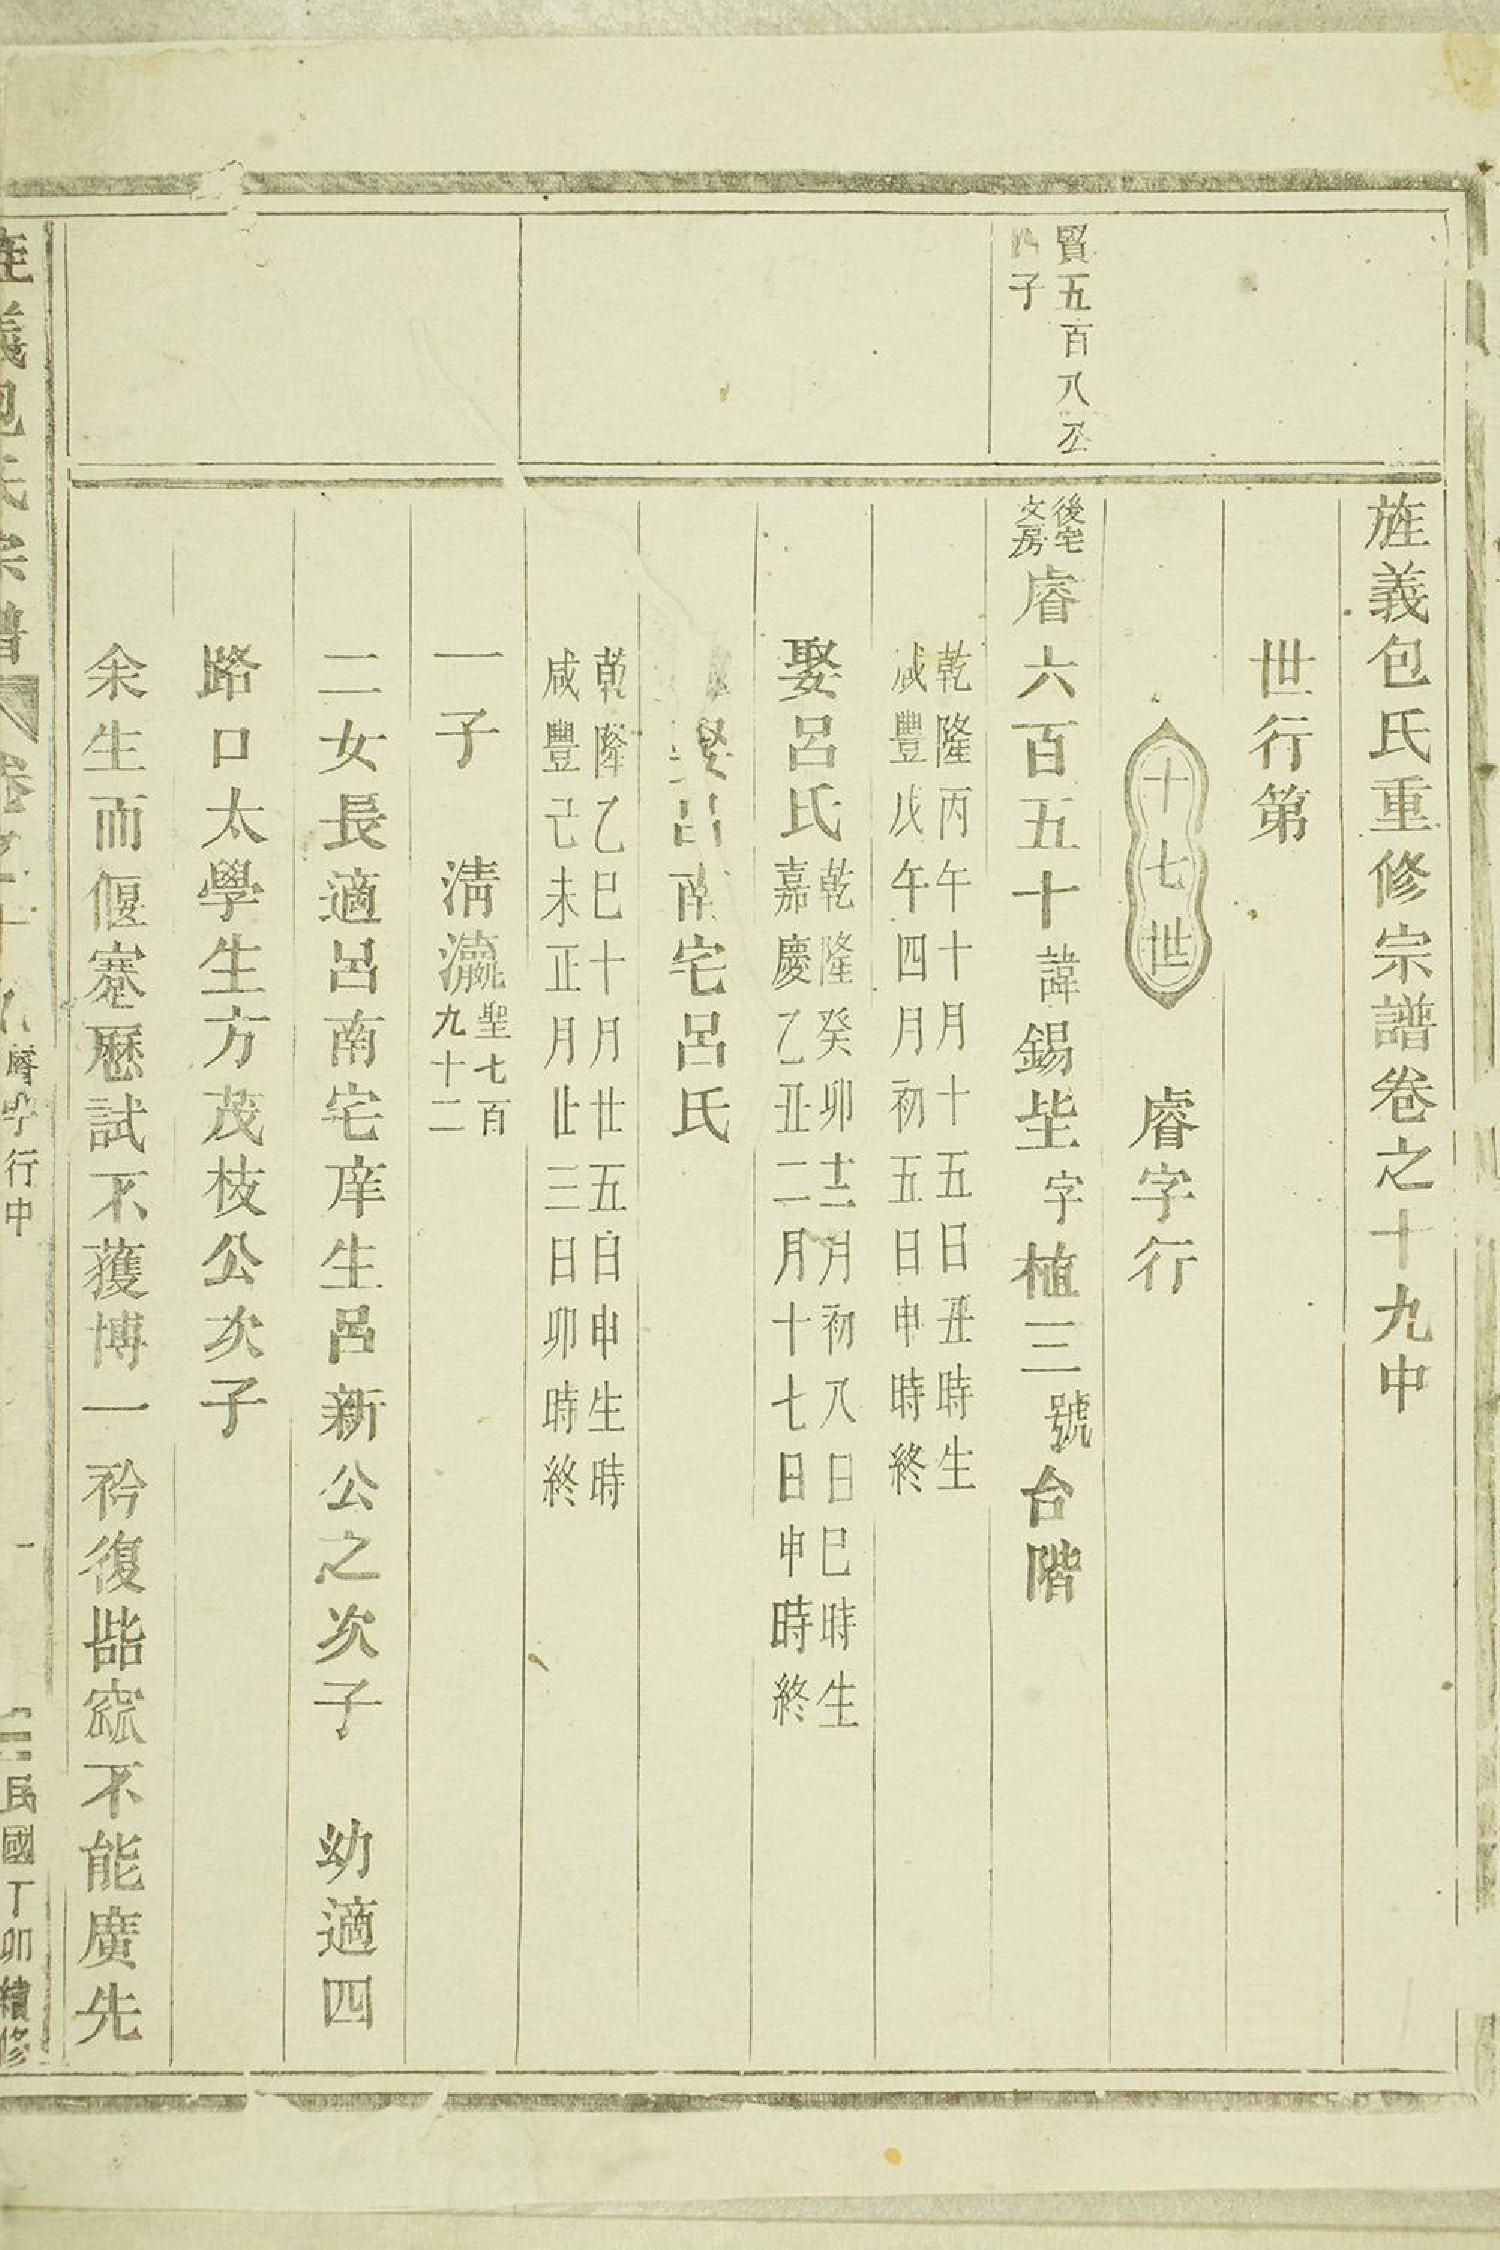 旌義包氏重修宗譜卷之十九中
世行第
十七世 睿字行
賢五百八公
四子
後宅
文房
睿六百五十諱錫坒字植三號台階
乾隆丙午十月十五日丑時生
咸豐戊午四月初五日申時終
娶呂氏
乾隆癸卯十二月初八日巳時生
嘉慶乙丑二月十七日申時終
娶呂南宅呂氏
乾隆乙巳十月廿五日申生時
咸豐己未正月廿三日卯時終
一子 淸瀛
聖七百
九十二
二女長適呂南宅庠生呂新公之次子 幼適四
路口太學生方茂枝公次子
余生而偃蹇歷試不獲博一衿復呰窳不能廣先
旌義包氏宗譜 卷之十九 睿字行中 一 民國丁卯續修